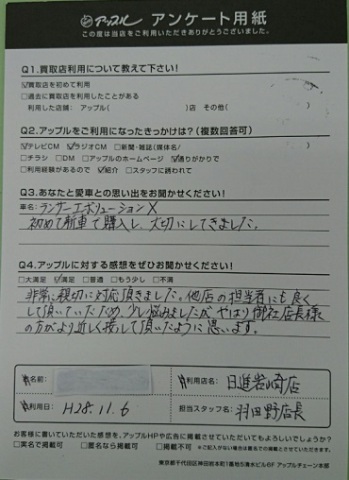 アップル アンケート用紙
この度は当店をご利用いただきありがとうございました。
Q1.買取店利用について教えて下さい!
☑買取店を初めて利用
□過去に買取店を利用したことがある
利用した店舗: アップル( )店 その他( )
Q2.アップルをご利用になったきっかけは?(複数回答可)
☑テレビCM ☑ラジオCM □新聞・雑誌(媒体名)
□チラシ □DM □アップルのホームページ ☑通りがかりで
□利用経験があるので ☑紹介 □スタッフに誘われて
Q3.あなたと愛車との思い出をお聞かせください!
車名: ランサーエボリューションX
初めて新車で購入し、大切にしてきました。
Q4.アップルに対する感想をぜひお聞かせください!
□大満足 ☑満足 □普通 □もう少し □不満
非常に親切に対応頂きました。他店の担当者にも良く
して頂いていたため、少し悩みましたがやはり御社店長様
の方がより近しく接して頂いたように思います。
お名前:
ご利用店名: 日進岩崎店
ご利用日: H28.11.6
担当スタッフ名: 羽田野店長
お客様に書いていただいた感想を、アップルHPや広告に掲載させていただいてもよろしいでしょうか?
□実名で掲載可 □匿名なら掲載可 □掲載不可 ※ご記入がない場合は匿名での掲載とさせていただきます。
東京都千代田区神田岩本町1番地5清水ビル6F アップルチェーン本部